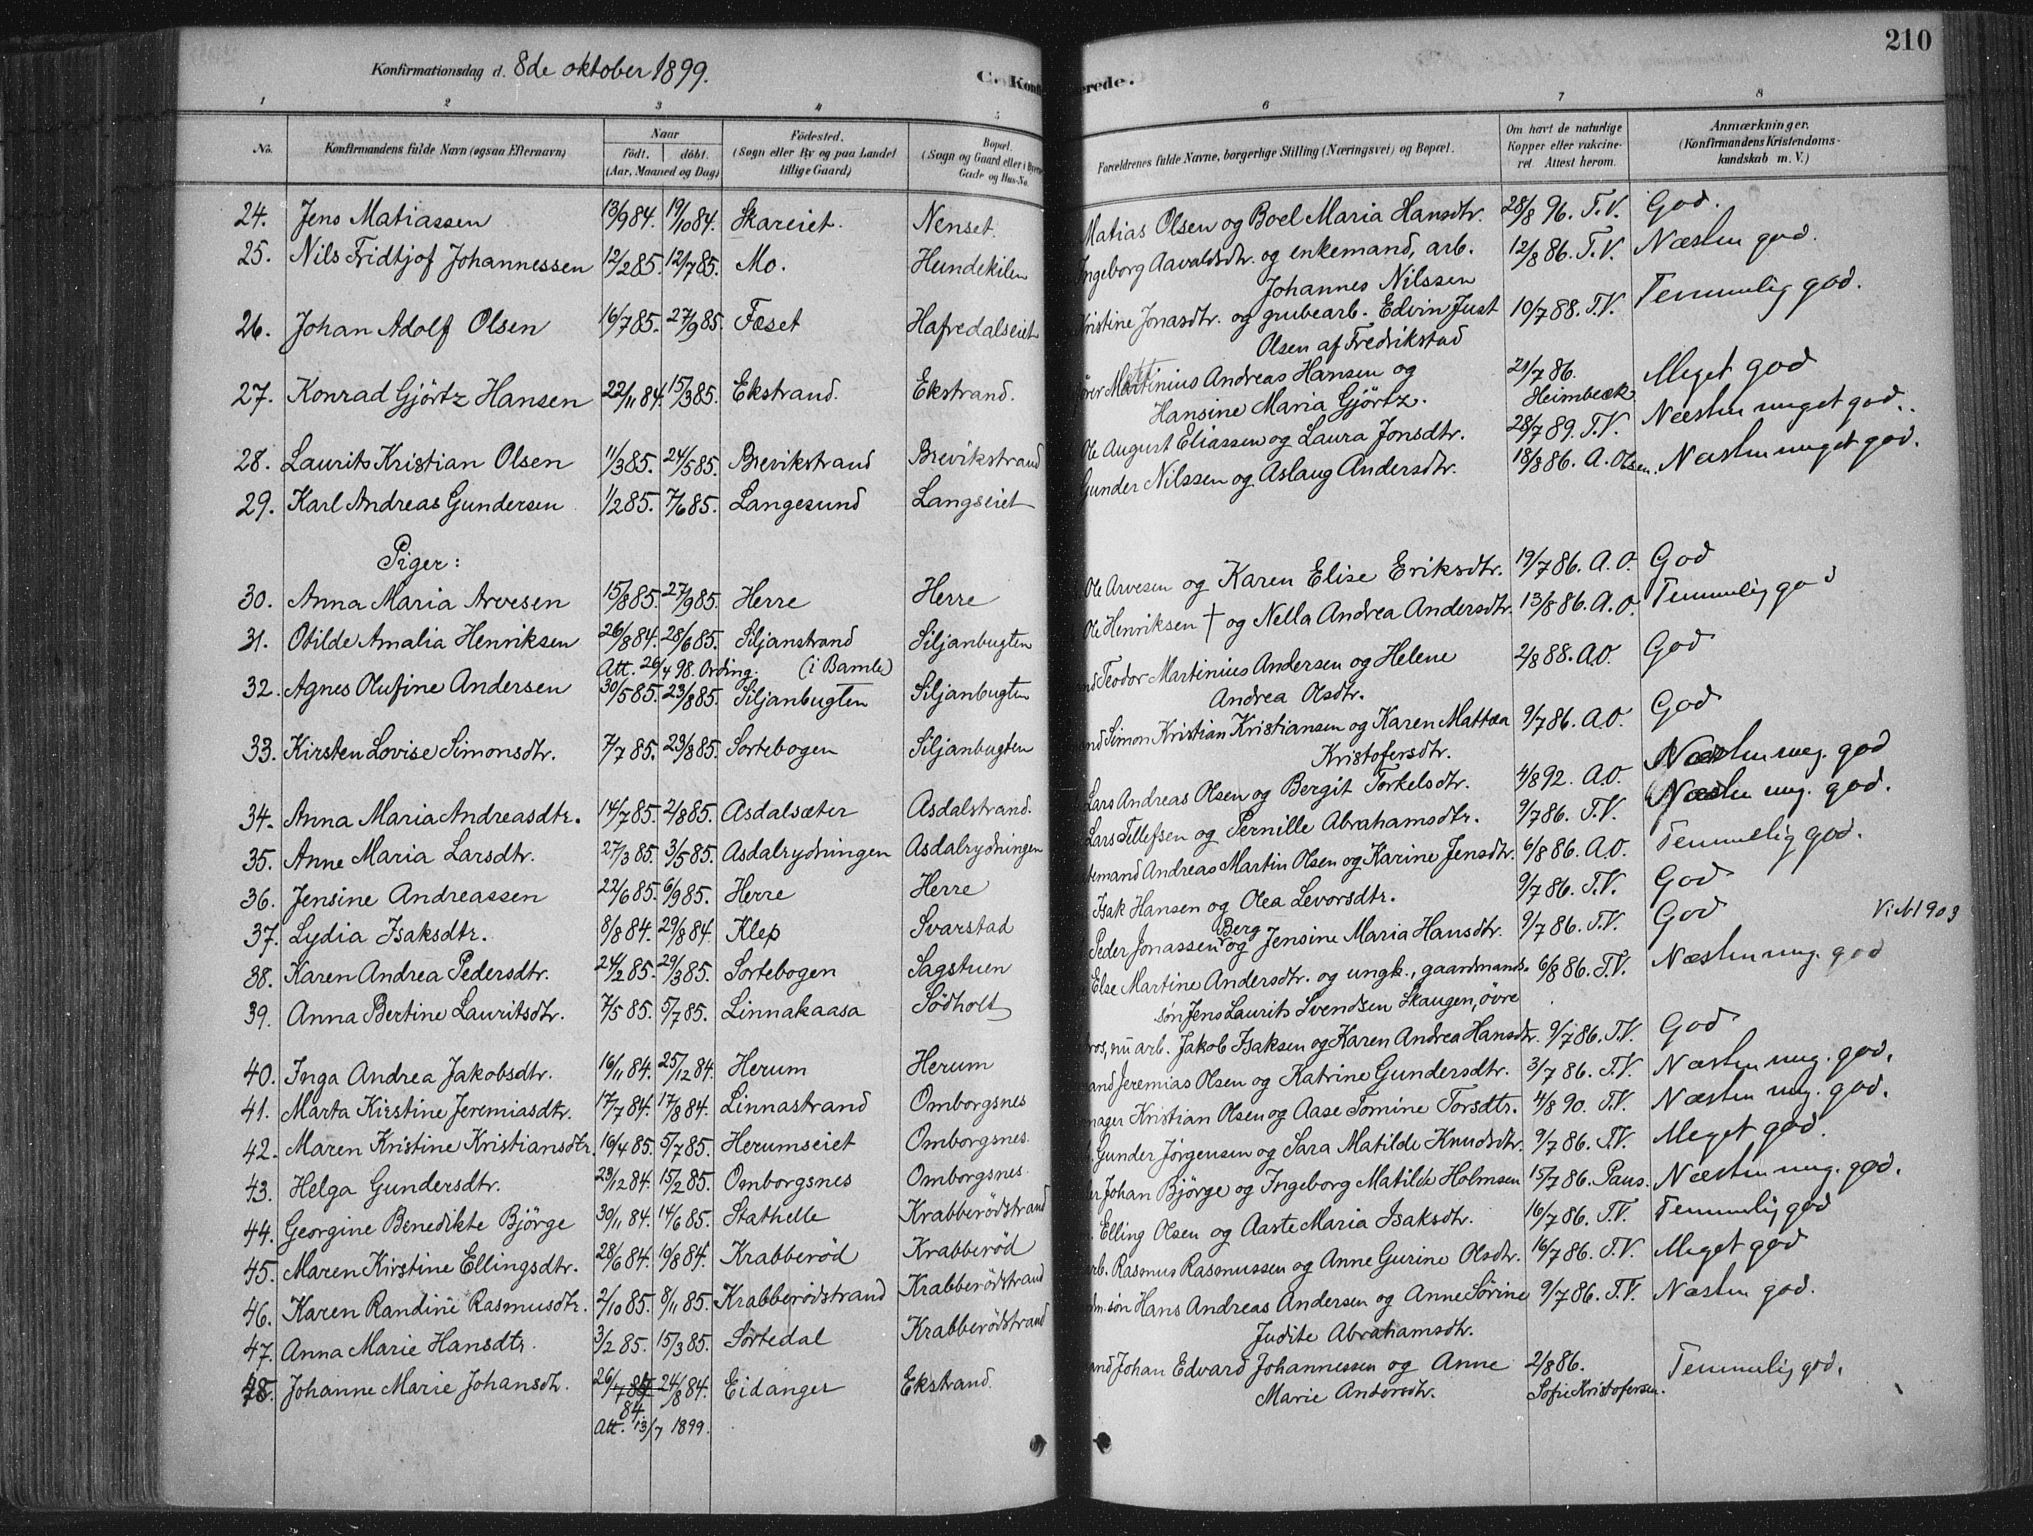 210
Konfirmationsdag d. 8de oktober 1899.
C. Konfi
erede.
1 2 3 4 5 6 7 8
No.
Konfirmandens fulde Navn (ogsaa Efternavn)
Naar
født. døbt.
(Aar, Maaned og Dag)
Fødested.
(Sogn eller By og paa Landet
tillige Gaard)
Bopæl.
(Sogn og Gaard eller i Byerne
Gade og Hus-No.
Forældrenes fulde Navne, borgerlige Stilling (Næringsvei) og Bopæl.
Om havt de naturlige
Kopper eller vakcine-
ret. Attest herom.
Anmærkninger.
(Konfirmandens Kristendoms-
kundskab m. V.)
24. Jens Matiassen 13/9 84. 19/10 84. Skareiet. Nenset. Matias Olsen og Boel Maria Hansdtr. 28/8 96. T.V. God.
25. Nils Fridtjof Johannessen 12/2 85. 12/7 85. Mo. Hundekilen Ingeborg Aavaldsdtr. og enkemand, arb. 12/8 86. T.V. Næsten god.
Johannes Nilssen
26. Johan Adolf Olsen 16/7 85. 27/9 85. Fæset Hafredalseiet Kristine Jonasdtr. og grubearb. Edvin Just 10/7 88. T.V. Temmelig god.
Olsen af Fredrikstad
27. Konrad Gjörtz Hansen 22/11 84. 15/3 85. Ekstrand. Ekstrand. Martinius Andreas Hansen og 21/7 86. Meget god
Hansine Maria Gjörtz. Heimbeck
28. Laurits Kristian Olsen 11/3 85. 24/5 85. Brevikstrand Brevikstrand Ole August Eliassen og Laura Jonsdtr. 28/7 89. T.V. Næsten meget god.
29. Karl Andreas Gundersen 1/2 85. 7/6 85. Langesund Langseiet Gunder Nilssen og Aslaug Andersdtr. 18/8 86. A. Olsen. Næsten meget god.
Piger:
30. Anna Maria Arvesen 15/8 85. 27/9 85. Herre Herre Ole Arvesen og Karen Elise Eriksdtr. 19/7 86. A.O. God
31. Otilde Amalia Henriksen 26/8 84. 28/6 85. Siljanstrand Siljanbugten Ole Henriksen † og Nella Andrea Andersdtr. 13/8 86. A.O. Temmelig god
Att. 26/4 98. Ording. (i Bamle)
32. Agnes Olufine Andersen 30/5 85. 23/8 85. Siljanbugten Siljanbugten Teodor Martinius Andersen og Helene 2/8 88. A.O. God
Andrea Olsdtr.
33. Kirsten Lovise Simonsdtr. 7/7 85. 23/8 85. Sortebogen Siljanbugten Simon Kristian Kristiansen og Karen Mattea 9/7 86. A.O. God
Kristofersdtr.
34. Anna Maria Andreasdtr. 14/7 85. 2/8 85. Asdalsæter Asdalstrand. Lars Andreas Olsen og Bergit Torkelsdtr. 4/8 92. A.O. Næsten meg. god
35. Anne Maria Larsdtr. 27/3 85. 3/5 85. Asdalrydningen Asdalrydningen Lars Tellefsen og Pernille Abrahamsdtr. 9/7 86. T.V. Næsten meg. god.
36. Jensine Andreassen 22/6 85. 6/9 85. Herre Herre Andreas Martin Olsen og Karine Jensdtr. 6/8 86. A.O. Temmelig god.
37. Lydia Isaksdtr. 8/8 84. 29/8 84. Klep Svarstad Isak Hansen og Olea Levorsdtr. 9/7 86. T.V. God
38. Karen Andrea Pedersdtr. 24/2 85. 29/3 85. Sortebogen Sagstuen Peder Jonassen Berg og Jensine Maria Hansdtr. 9/7 86. T.V. God Viet 1903
39. Anna Bertine Lauritsdtr. 7/5 85. 5/7 85. Linnakaasa Södholt Else Martine Andersdtr. og ungk., gaardmands- 6/8 86. T.V. Næsten meg. god
søn Jens Laurits Svendsen Skaugen, övre
40. Inga Andrea Jakobsdtr. 16/11 84. 25/12 84. Herum Herum nu arb. Jakob Isaksen og Karen Andrea Hansdtr. 9/7 86. T.V. God
41. Marta Kirstine Jeremiasdtr. 17/7 84. 17/8 84. Linnastrand Omborgsnes Jeremias Olsen og Katrine Gundersdtr. 3/7 86. T.V. Næsten meg. god.
42. Maren Kristine Kristiansdtr. 16/4 85. 5/7 85. Herumseiet Omborgsnes Kristian Olsen og Aase Tomine Torsdtr. 4/8 90. T.V. Næsten meg. god.
43. Helga Gundersdtr. 23/12 84. 15/2 85. Omborgsnes Omborgsnes Gunder Jørgensen og Sara Matilde Knudsdtr. 9/7 86. T.V. Meget god.
44. Georgine Benedikte Bjørge 30/11 84. 14/6 85. Stathelle Krabberødstrand Johan Bjørge og Ingeborg Matilde Holmsen 15/7 86. Paus. Næsten meg. god.
45. Maren Kirstine Ellingsdtr. 28/6 84. 19/8 84. Krabberød Krabberød Elling Olsen og Aaste Maria Isaksdtr. 16/7 86. T.V. Temmelig god
46. Karen Randine Rasmusdtr. 2/10 85. 8/11 85. Krabberødstrand Krabberødstrand Rasmus Rasmussen og Anne Gurine Olsdtr. 16/7 86. T.V. Meget god
47. Anna Marie Hansdtr. 3/2 85. 15/3 85. Sørtedal Krabberødstrand søn Hans Andreas Andersen og Anne Sørine 9/7 86. T.V. Næsten god.
Judite Abrahamsdtr.
48. Johanne Marie Johansdtr. 26/7 84 24/8 84. Eidanger Ekstrand. Johan Edvard Johannessen og Anne 2/8 86. Temmelig god.
Marie Andersdtr. Sofie Kristofersen.
Att. 13/7 1899.